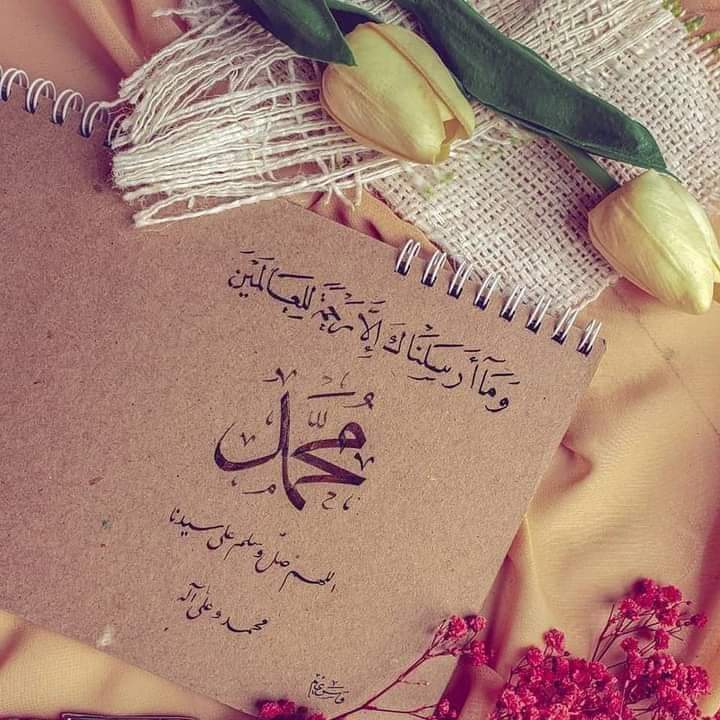 وَمَآ أَرْسَلْنَاكَ إِلَّا رَحْمَةً لِلْعَالَمِيْنَ
مُحَمَّد
اللهم صلّ وسلم على سيدنا
محمد وعلى آله